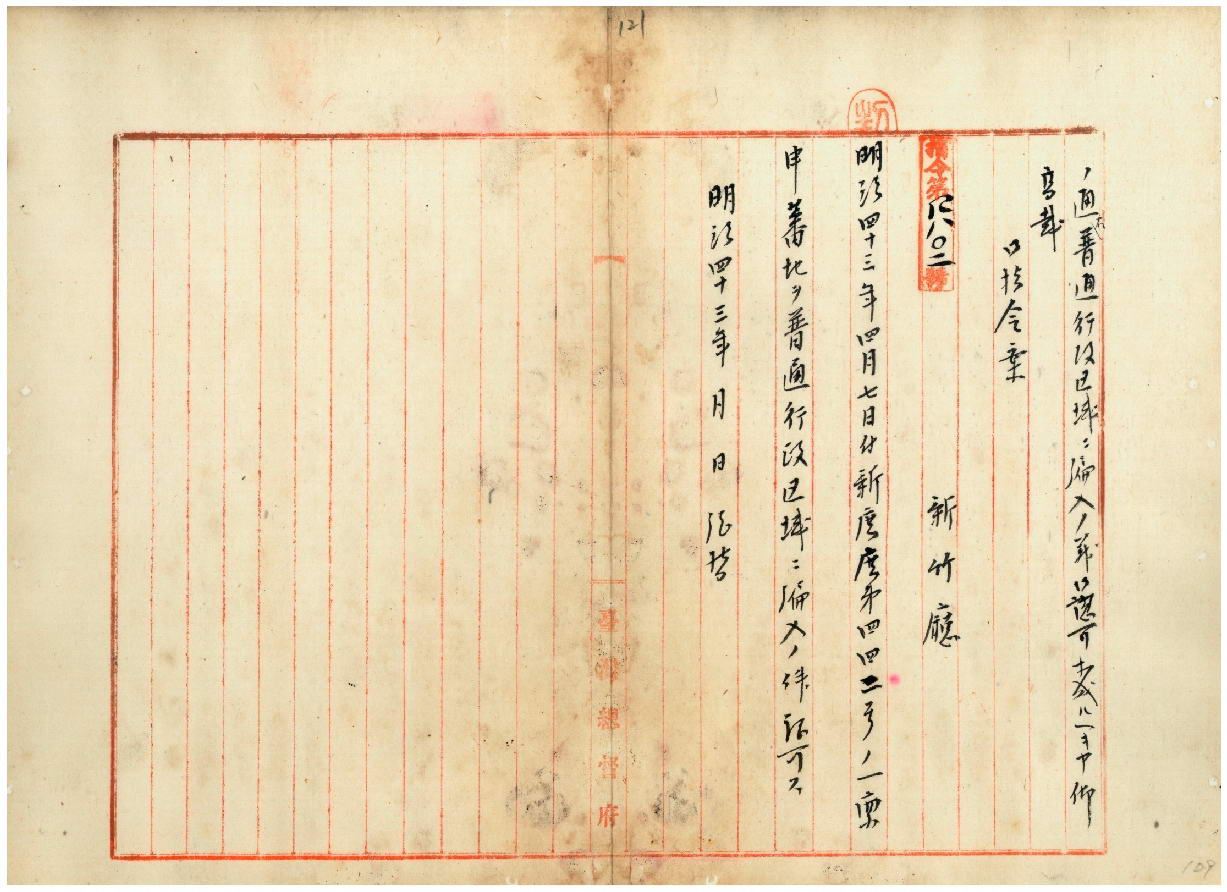 121
ノ通普通行政区域ニ編入ノ義御認可相成可然ヤ仰
高裁
御指令案
指令第一八〇二號
新竹廳
明治四十三年四月七日付新庶庶第四四二号ノ一稟
申蕃地ヲ普通行政区域ニ編入ノ件認可ス
明治四十三年 月 日 総督
臺灣總督府
109